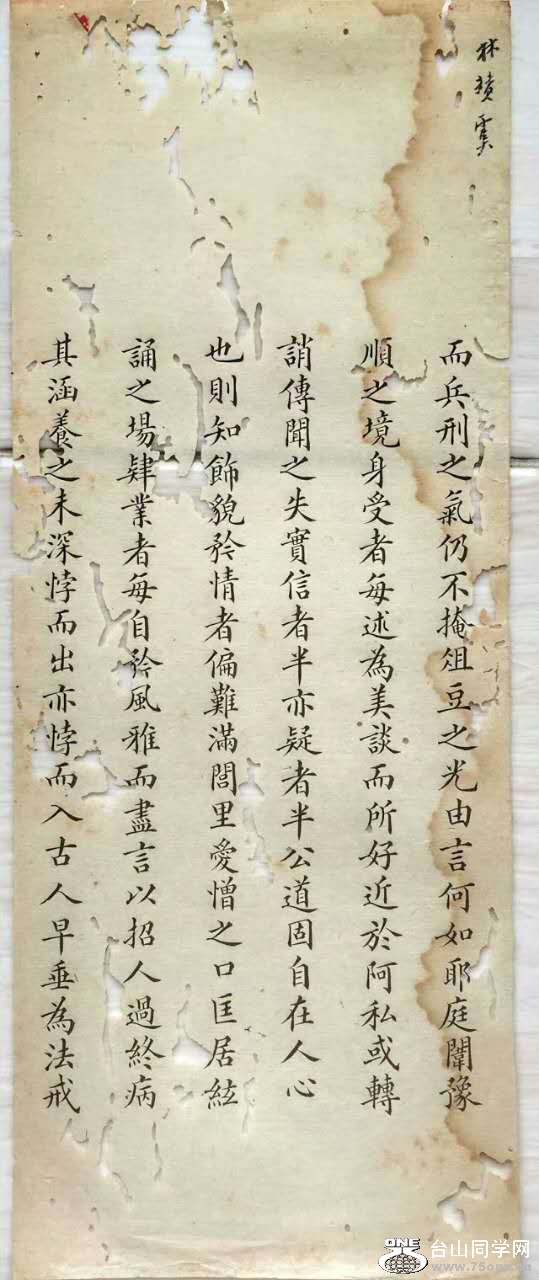 林蕡雲
而兵刑之氣仍不掩俎豆之光由言何如耶庭闈豫
順之境身受者每述為美談而所好近於阿私或轉
誚傳聞之失實信者半亦疑者半公道固自在人心
也則知飾貌矜情者偏難滿閭里愛憎之口匡居絃
誦之場肆業者每自矜風雅而盡言以招人過終病
其涵養之未深悖而出亦悖而入古人早垂為法戒
ONE
台山同学网
www.75one.cn